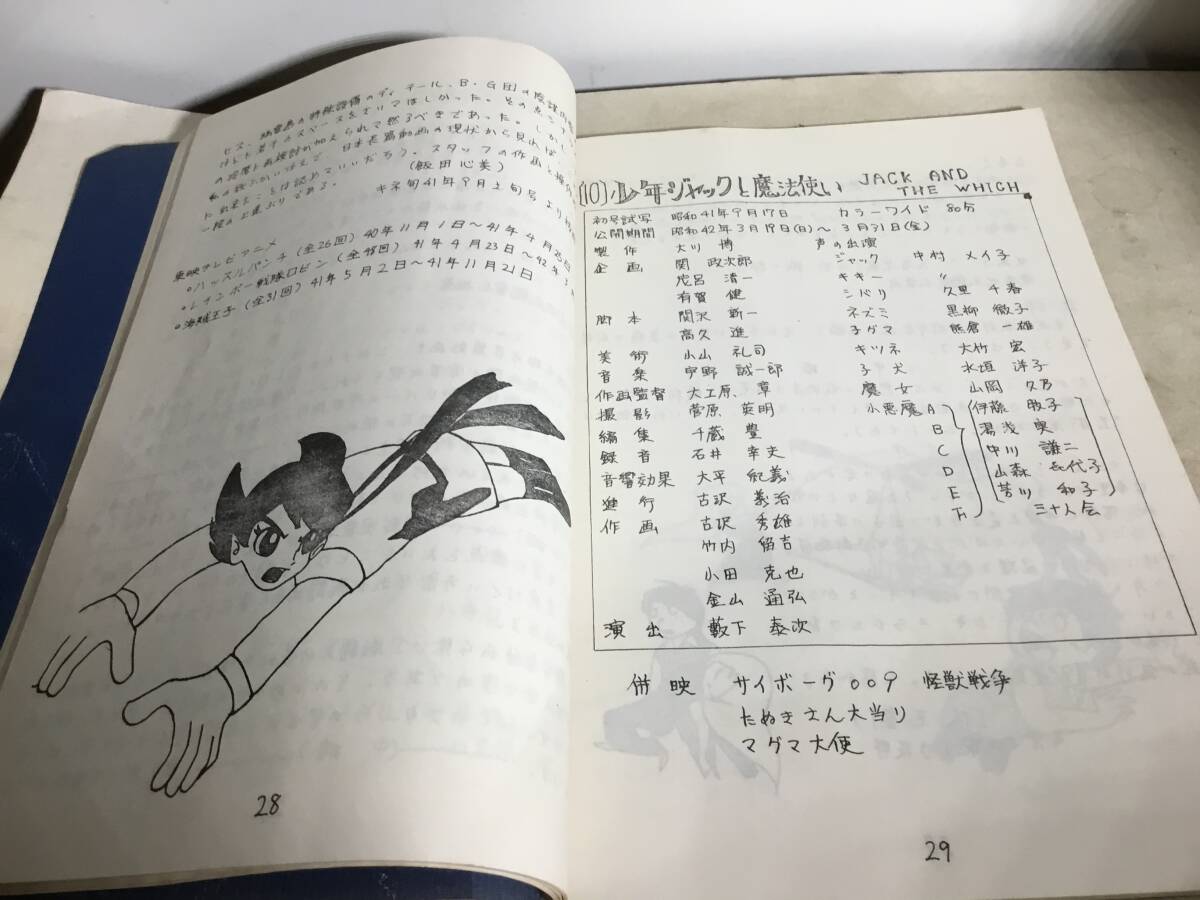 の特殊設備のディテール、B・G団の
スペースをさいてほしかった。その点シナリ
再検討が加えられて然るべきであった。しかし
日本長篇動画の現状から見れば
ことは認めていいだろう。スタッフの作画と
一段の上達ぶりである。 (飯田心美)
キネ旬41年9月上旬号より
東映テレビアニメ
○ハッスルパンチ(全26回) 40年11月1日〜41年4月25日
○レインボー戦隊ロビン(全48回) 41年4月23日〜42年3
○海賊王子(全31回) 41年5月2日〜41年11月21日
28
(10)少年ジャックと魔法使い JACK AND THE WHICH
初号試写 昭和41年9月17日 カラーワイド 80分
公開期間 昭和42年3月19日(日)〜3月31日(金)
製作 大川 博 声の出演
企画 関 政次郎 ジャック 中村 メイ子
茂呂 清一 キキー 〃
有賀 健 シバリ 久里 千春
脚本 関沢 新一 ネズミ 黒柳 徹子
高久 進 子グマ 熊倉 一雄
美術 小山 礼司 キツネ 大竹 宏
音楽 宇野 誠一郎 子犬 水垣 洋子
作画監督 大工原 章 魔女 山岡 久乃
撮影 菅原 英明 小悪魔A 伊藤 牧子
編集 千蔵 豊 B 湯浅 実
録音 石井 幸夫 C 中川 謙二
音響効果 大平 紀義 D 山森 喜代子
進行 古沢 義治 E 芳川 和子
作画 古沢 秀雄 F 三十人会
竹内 留吉
小田 克也
金山 通弘
演出 藪下 泰次
併映 サイボーグ009 怪獣戦争
たぬきさん大当り
マグマ大使
29